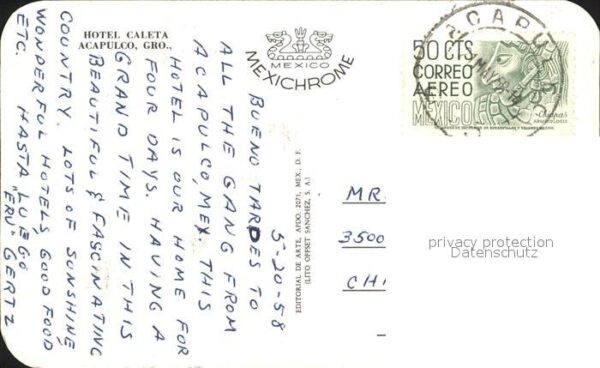 HOTEL CALETA
ACAPULCO, GRO.,
MEXICO
MEXICHROME
5-20-58
BUENO TARDES TO
ALL THE GANG FROM
ACAPULCO, MEX. THIS
HOTEL IS OUR HOME FOR
FOUR DAYS. HAVING A
GRAND TIME IN THIS
BEAUTIFUL & FASCINATING
COUNTRY. LOTS OF SUNSHINE,
WONDERFUL HOTELS, GOOD FOOD
ETC. HASTA LUEGO
"ERV" GERTZ
EDITORIAL DE ARTE, APDO. 2071, MEX., D. F.
(LITO OFFSET SANCHEZ, S. A.)
50 CTS
CORREO
AEREO
MEXICO
Chiapas
ARQUEOLOGIA
ACAPUL
MAY
MR.
3500
CHI
privacy protection
Datenschutz